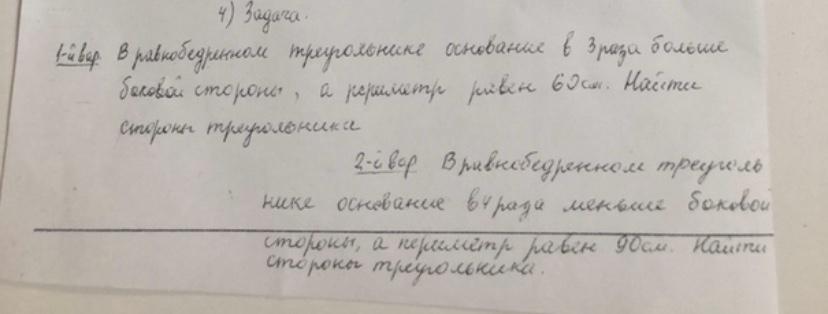 4) Задача.
1-й вар. В равнобедренном треугольнике основание в 3 раза больше
боковой стороны, а периметр равен 60 см. Найти
стороны треугольника
2-й вар В равнобедренном треуголь
нике основание в 4 раза меньше боковой
стороны, а периметр равен 90 см. Найти
стороны треугольника.